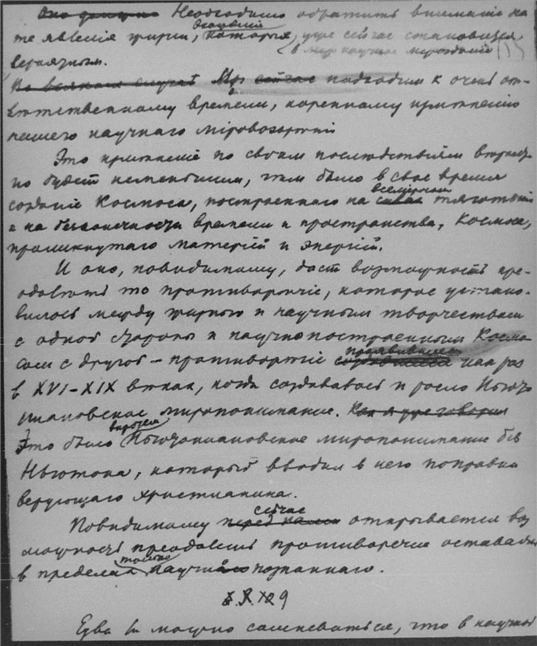 Необходимо обратить внимание на
те явления жизни, которые, уже сейчас становятся
вероятным.
Мы подходим к очень от-
ветственному времени, коренному изменению
нашего научнаго мiровоззрения
Это изменение по своим последствиям вероят-
но будет не меньшим, чем было в свое время
создание Космоса, построеннаго на всемирном тяготении
и на бесконечности времени и пространства, Космоса,
проникнутаго материей и энергией.
И оно, повидимому, даст возможность пре-
одолеть то противоречие, которое устано-
вилось между жизнью и научным творчеством
с одной стороны и научно построенным Космо-
сом с другой – противоречие проявившееся как раз
в XVI–XIX веках, когда создавалось и росло Ньюто-
нiановское миропонимание.
Это было Ньютонiановское миропонимание без
Ньютона, который вводил в него поправки
верующаго христианина.
Повидимому сейчас открывается воз-
можность преодолеть противоречие оставаясь
в пределах только научно познаннаго.
§ 29
Едва ли можно сомневаться, что в научной